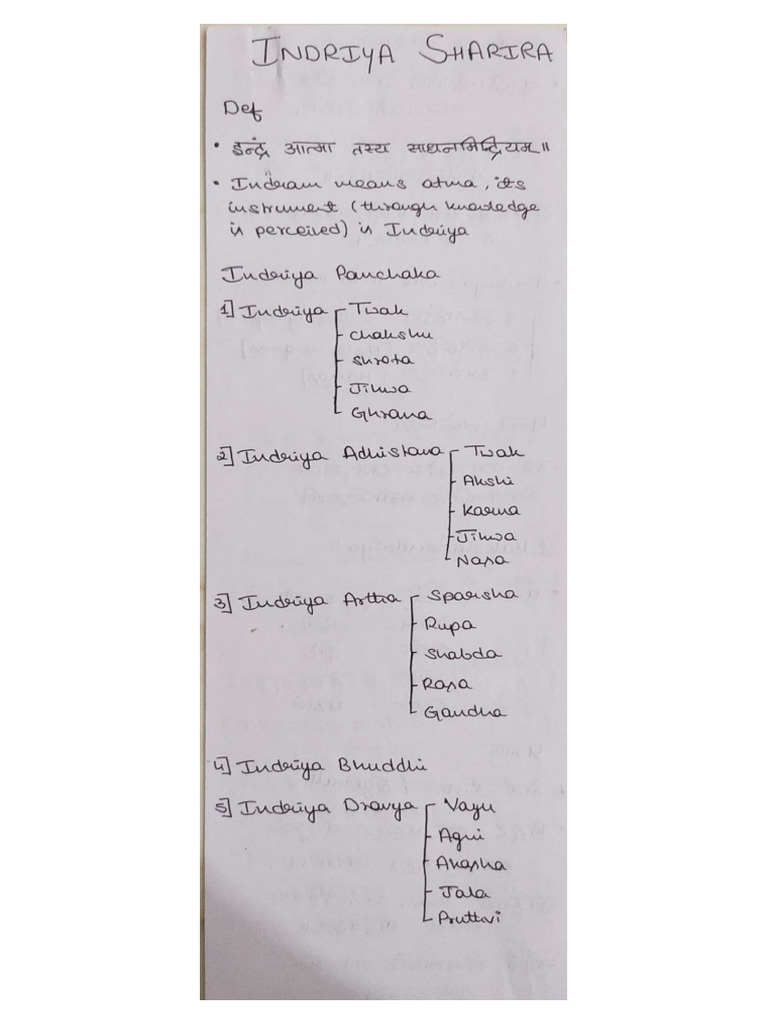 INDRIYA SHARIRA
Def
• इन्द्रं आत्मा तस्य साधनमिन्द्रियम्॥
• Indram means atma, its
instrument (through knowledge
is perceived) is Indriya
Indriya Panchaka
1] Indriya - Twak
- chakshu
- shrota
- Jihwa
- Ghrana
2] Indriya Adhistana - Twak
- Akshi
- Karna
- Jihwa
- Nasa
3] Indriya Artha - Sparsha
- Rupa
- Shabda
- Rasa
- Gandha
4] Indriya Bhuddhi
5] Indriya Dravya - Vayu
- Agni
- Akasha
- Jala
- Pruthvi